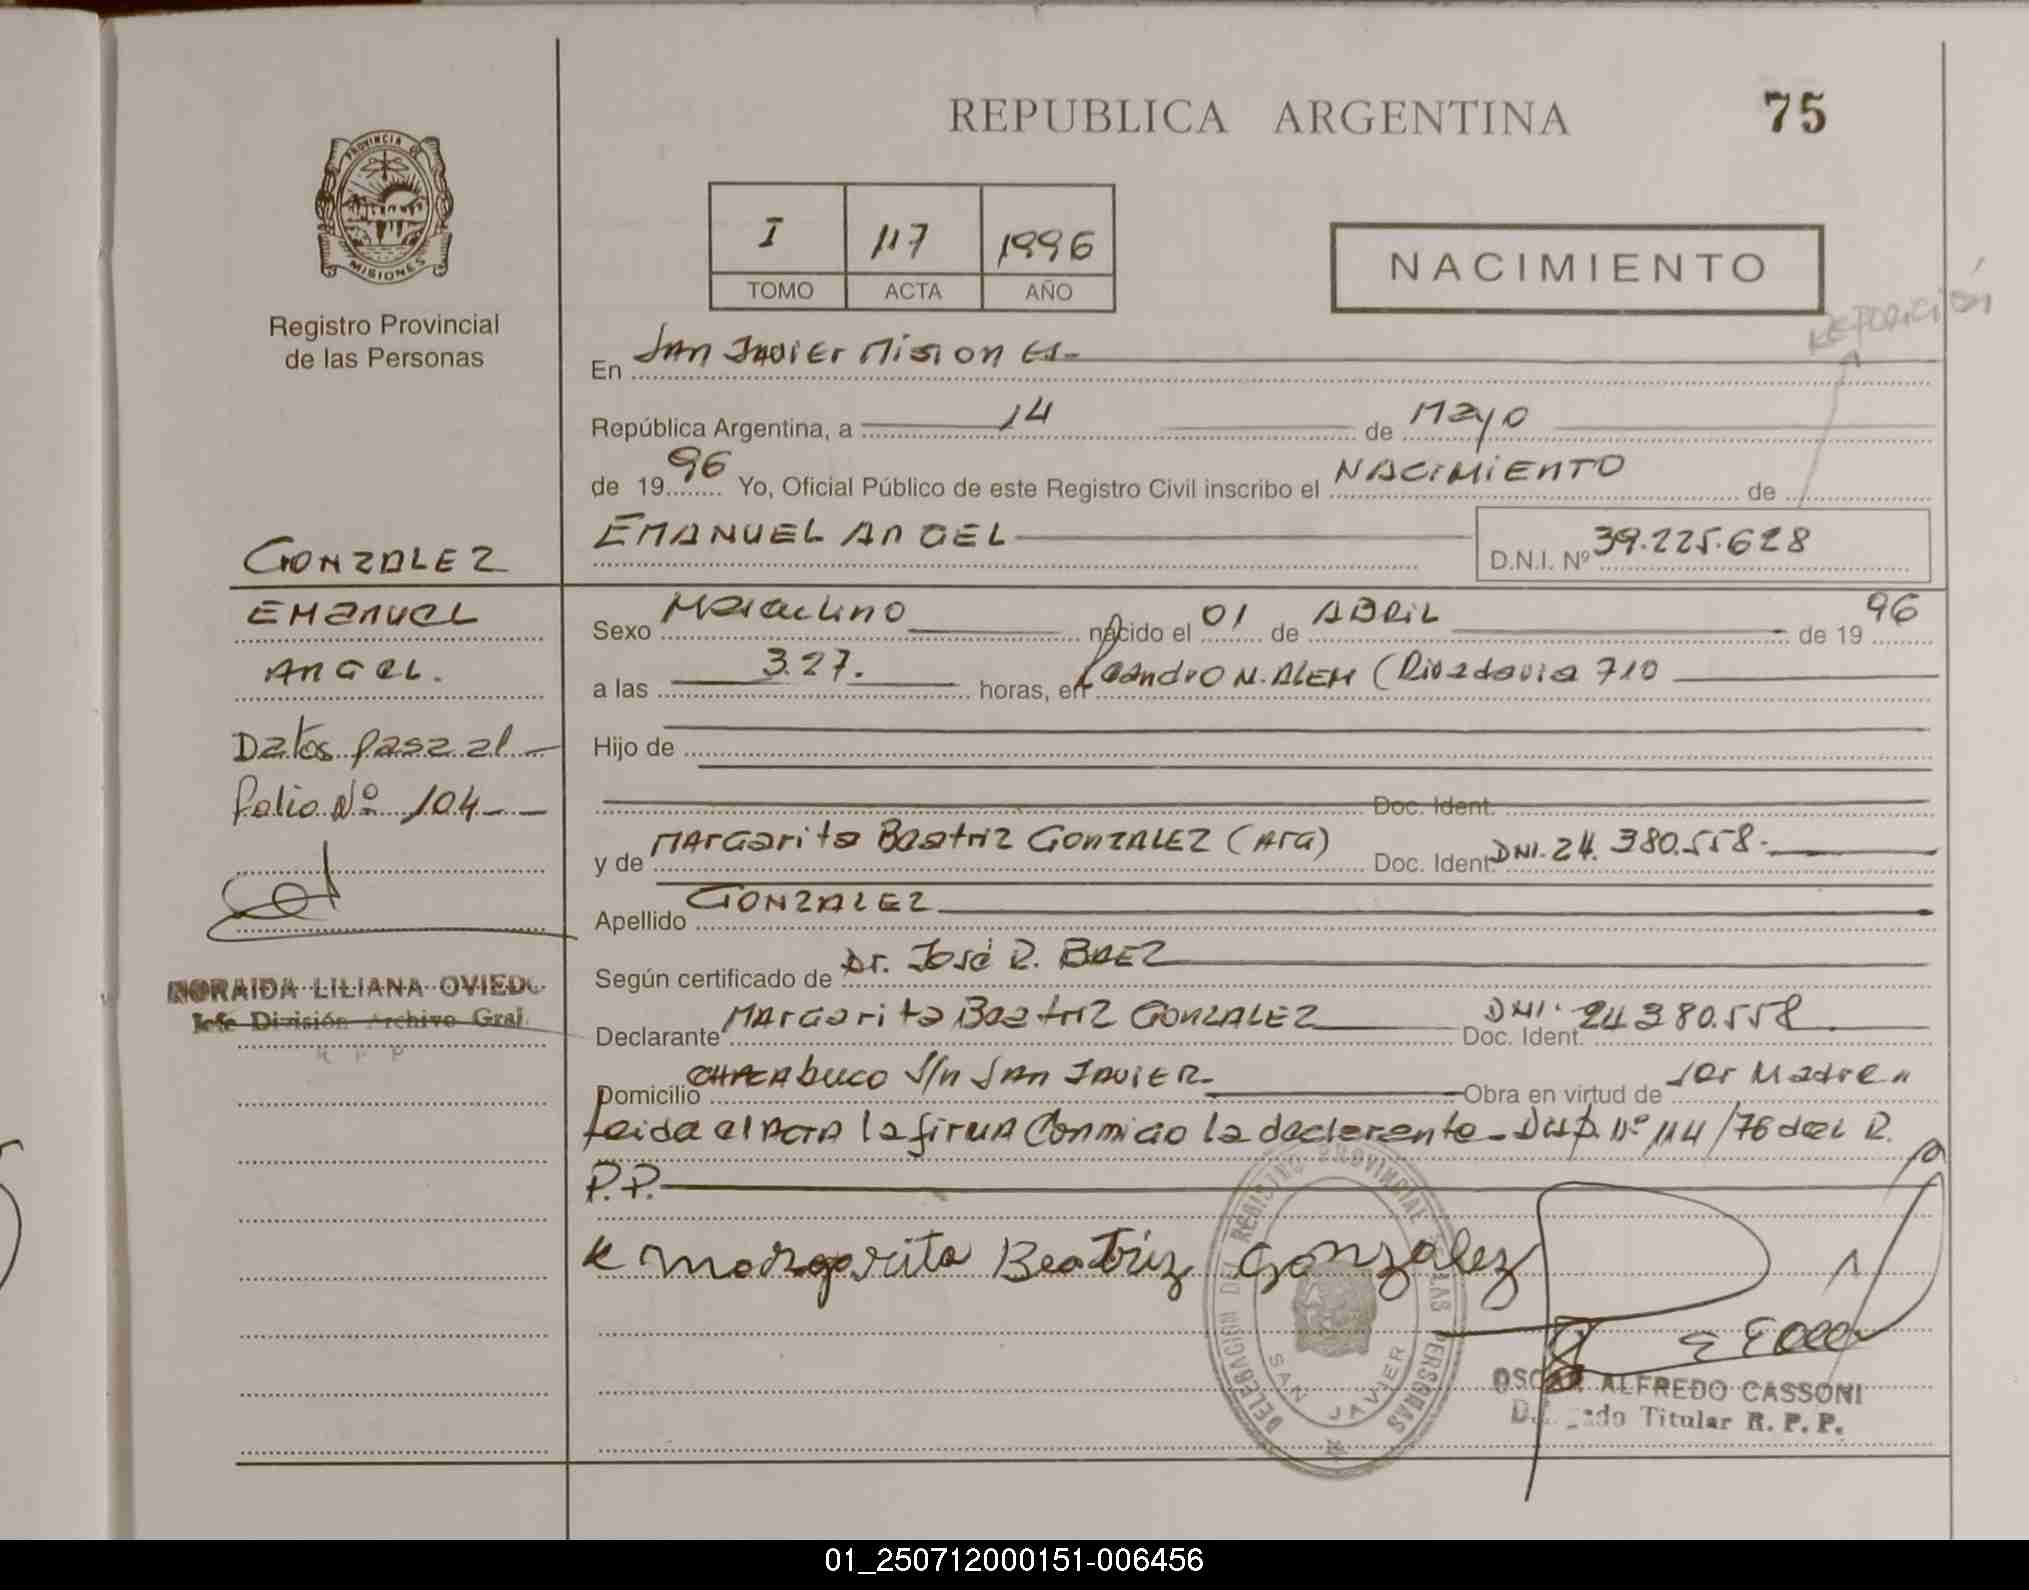 REPUBLICA ARGENTINA
75
PROVINCIA DE
MISIONES
Registro Provincial
de las Personas
I 117 1996
TOMO ACTA AÑO
NACIMIENTO
REPOSICIÓN
En San Javier Misiones-
República Argentina, a 14 de Mayo
de 1996 Yo, Oficial Público de este Registro Civil inscribo el NACIMIENTO de
EMANUEL ANGEL
D.N.I. Nº 39.225.628
GONZALEZ
EMANUEL
ANGEL.
Datos pasa al
folio Nº 104
NORAIDA LILIANA OVIEDO
Jefe División Archivo Gral.
R P P
Sexo Masculino nacido el 01 de ABRIL de 1996
a las 3.27. horas, en Leandro N. ALEM (Rivadavia 710
Hijo de
Doc. Ident.
y de Margarita Beatriz GONZALEZ (Arg) Doc. Ident. DNI. 24.380.558.
Apellido GONZALEZ
Según certificado de Dr. José R. BAEZ
Declarante Margarita Beatriz GONZALEZ Doc. Ident. DNI. 24.380.558
Domicilio CHACAbuco S/n San JAVIER- Obra en virtud de ser Madre
Leida el acta la firma conmigo la declarente- Disp. Nº 114/76 del R.
P.P.
Margarita Beatriz Gonzalez
DELEGACION DEL REGISTRO PROVINCIAL DE LAS PERSONAS
SAN JAVIER
OSCAR ALFREDO CASSONI
Delegado Titular R. P. P.
01_250712000151-006456